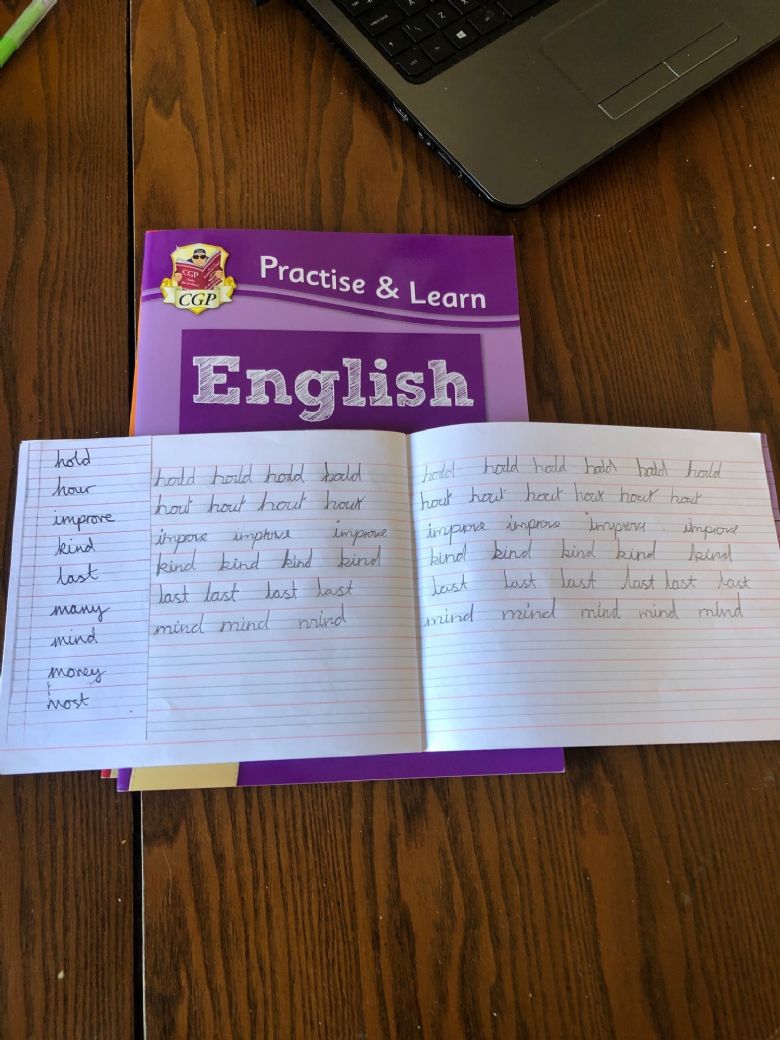 CGP
CGP
Practise & Learn
English
hold
hour
improve
kind
last
many
mind
money
most
hold hold hold hold
hour hour hour hour
improve improve improve
kind kind kind kind
last last last last
mind mind mind
hold hold hold hold hold hold
hour hour hour hour hour hour
improve improve improve improve
kind kind kind kind kind
last last last last last last
mind mind mind mind mind